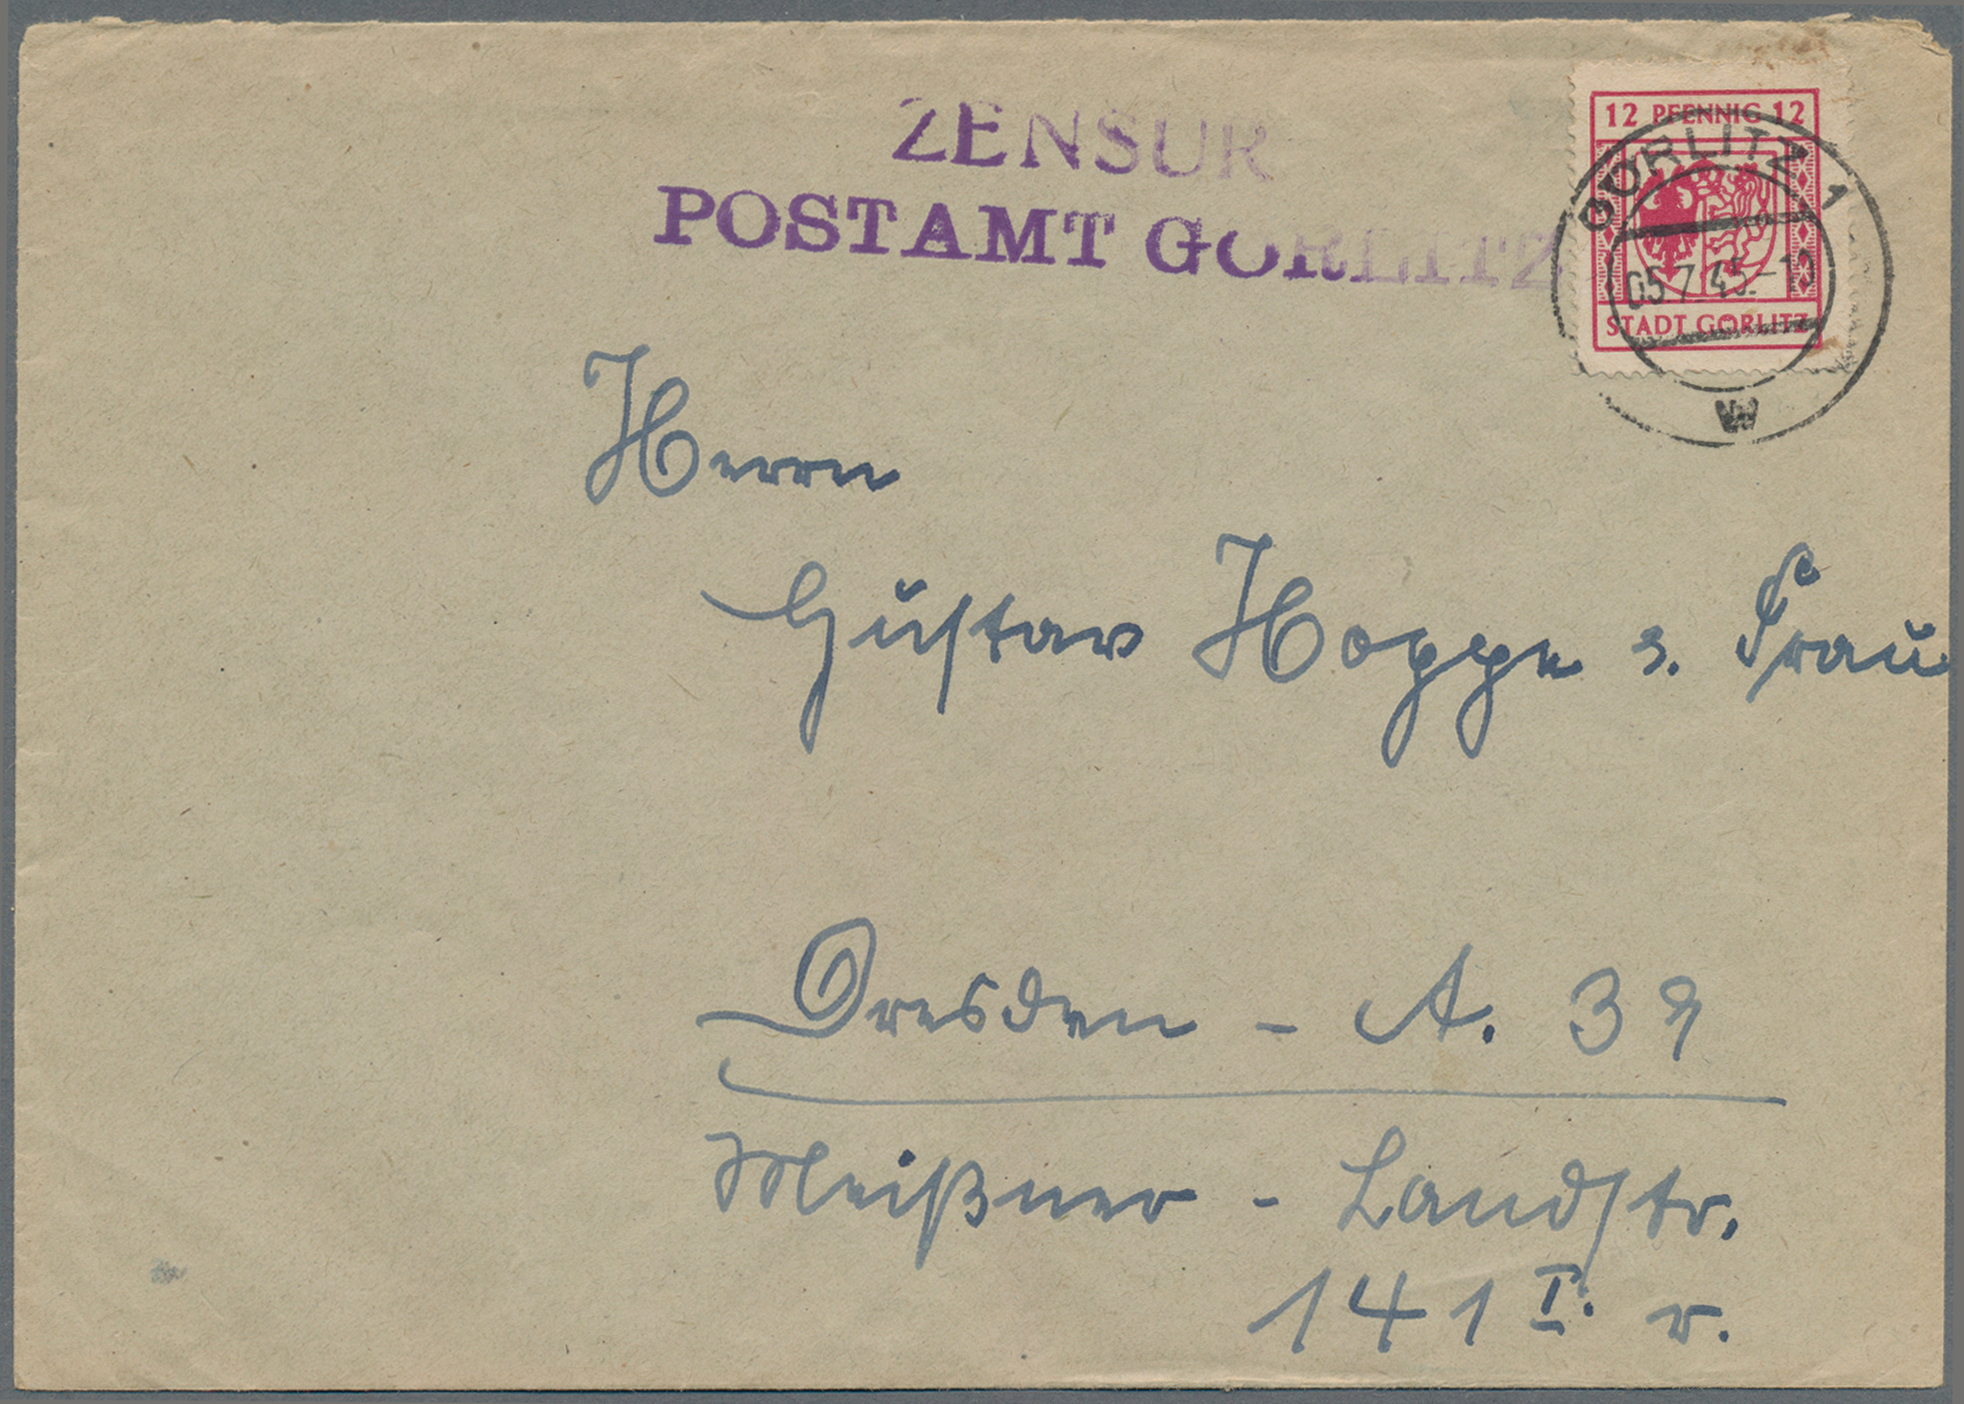 ZENSUR
POSTAMT GÖRLITZ
12 PFENNIG 12
GÖRLITZ 1
05.7.45.-10
STADT GÖRLITZ
w
Herrn
Gustav Hoppe u. Frau
Dresden - A. 39
Meißner - Landstr.
141 I. r.